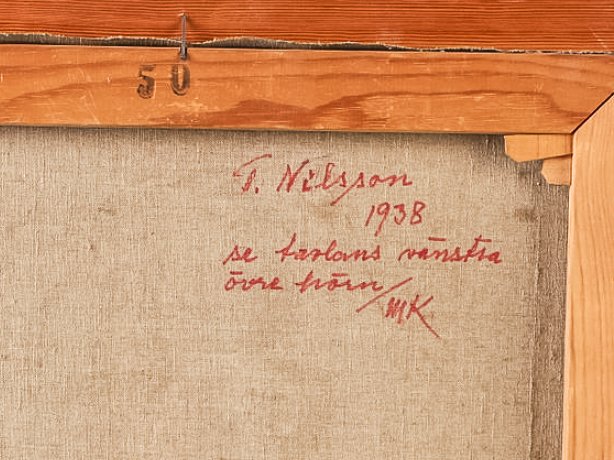 50
T. Nilsson
1938
se tavlans vänstra
övre hörn / MK